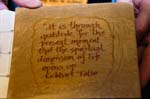 "it is through
gratitude for the
present moment
that the spiritual
dimension of life
opens up"
Eckhart Tolle